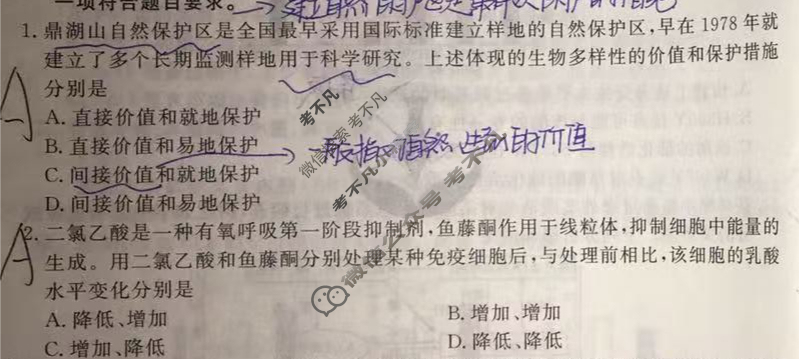 一项符合题目要求。
1. 鼎湖山自然保护区是全国最早采用国际标准建立样地的自然保护区,早在 1978 年就
建立了多个长期监测样地用于科学研究。上述体现的生物多样性的价值和保护措施
分别是
A. 直接价值和就地保护
B. 直接价值和易地保护
C. 间接价值和就地保护
D. 间接价值和易地保护
A
2. 二氯乙酸是一种有氧呼吸第一阶段抑制剂,鱼藤酮作用于线粒体,抑制细胞中能量的
生成。用二氯乙酸和鱼藤酮分别处理某种免疫细胞后,与处理前相比,该细胞的乳酸
水平变化分别是
A. 降低、增加
B. 增加、增加
C. 增加、降低
D. 降低、降低
A
考不凡
微信搜索考不凡
考不凡
微信公众号 考不凡